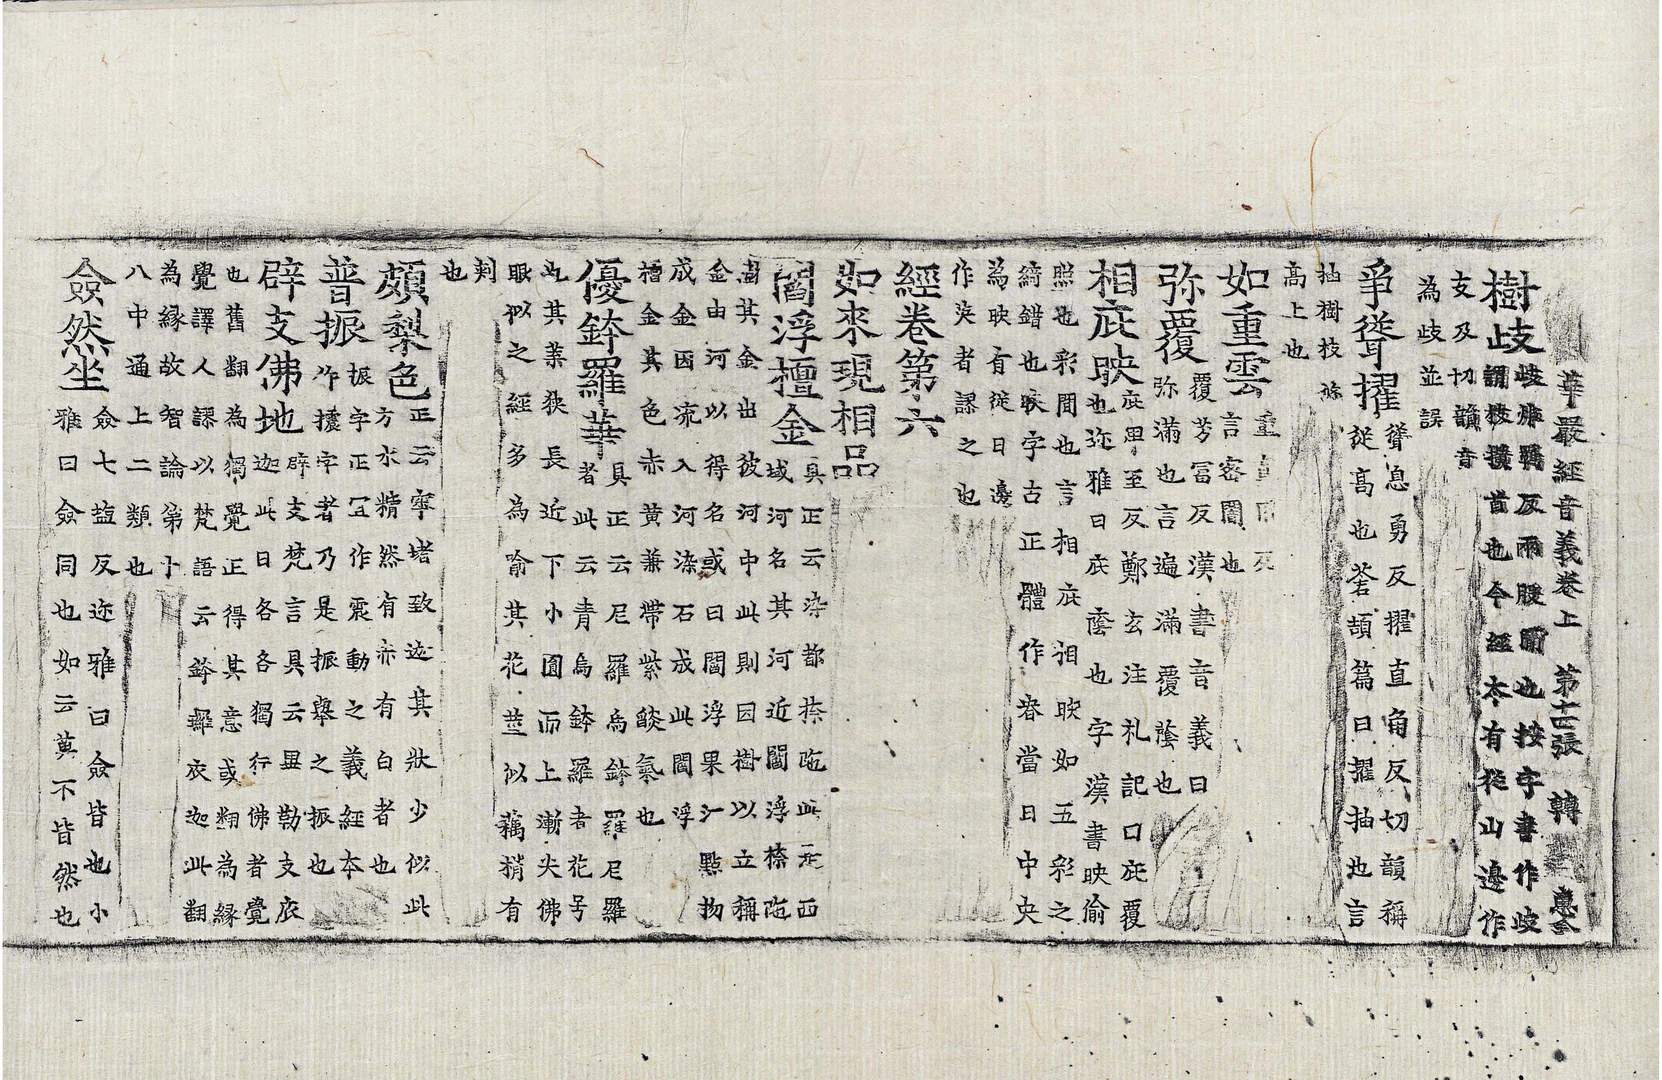 華嚴經音義卷上 第十二張 轉
樹歧歧 反兩股間也按字書作歧
謂枝橫首也今經本有從山邊作
支及切韻音
為歧並誤
爭聳擢聳息勇反擢直角反切韻稱
從高也蒼頡篇曰擢抽也言
抽樹枝條
高上也
如重雲重直 反
言密閣也
弥覆覆芳冨反漢書音義曰
弥滿也言遍滿覆蔭也
相庇映庇畀至反鄭玄注礼記曰庇覆
也迩雅曰庇蔭也字漢書映偷
照也彩間也言相庇相映如五彩之
綺錯也映字古正體作 當日中央
為映有從日邊
作英者謬之也
經卷第六
如來現相品
閻浮檀金具正云染部捺陁此是西
域河名其河近閻浮捺陁
樹其金出彼河中此則因樹以立稱
金由河以得名或曰閻浮果汁㸃物
成金因流入河染石成此閻浮
檀金其色赤黃兼帶紫𦦨氣也
優鉢羅華具正云尼羅烏鉢羅尼羅
者此云青烏鉢羅者花号
也其葉狹長近下小圓而上漸尖佛
眼似之經多為喻其花莖似藕梢有
刺
也
頗棃色正云窣堵致迦其狀少似此
方水精然有赤有白者也
普振振字正冝作震動之義經本
作攇字者乃是振舉之振也
辟支佛地辟支梵言具云畢勒支底
迦此曰各各獨行佛者覺
也舊翻為獨覺正得其意或翻為緣
覺譯人謬以梵語云鉢𦀇衣迦此翻
為緣故智論第十
八中通上二類也
僉然坐僉七塩反迩雅曰僉皆也小
雅曰僉同也如云莫不皆然也